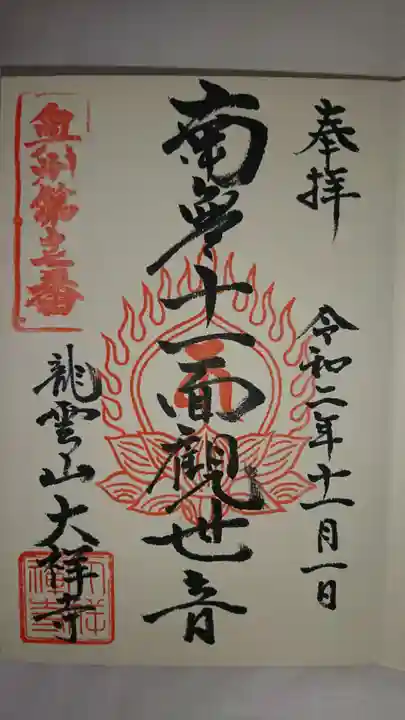 奉拝
令和二年十一月一日
南無十一面観世音
龍雲山大祥寺
大祥禅寺